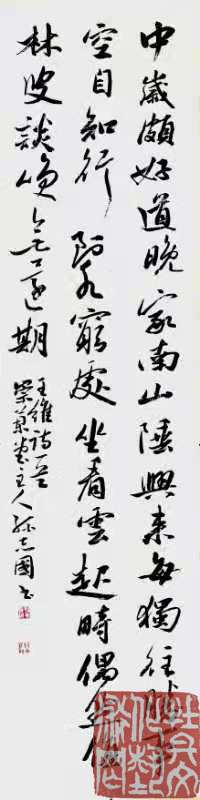 中歲頗好道晚家南山陲興來每獨往勝事
空自知行到水窮處坐看雲起時偶然值
林叟談咲無還期
王維詩一首
堂主人孫志國書